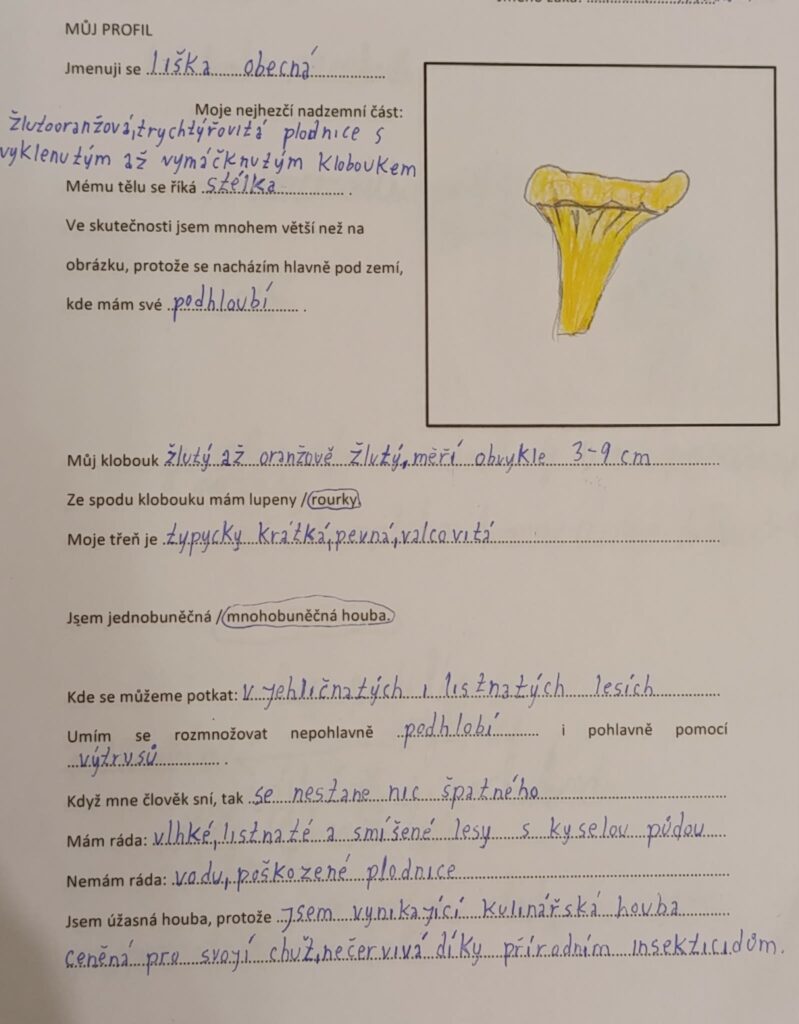 MŮJ PROFIL
Jmenuji se liška obecná
Moje nejhezčí nadzemní část:
žlutooranžová, trychtýřovitá plodnice s
vyklenutým až vymáčknutým kloboukem
Mému tělu se říká stélka .
Ve skutečnosti jsem mnohem větší než na
obrázku, protože se nacházím hlavně pod zemí,
kde mám své podhloubí .
Můj klobouk žlutý až oranžově žlutý, měří obvykle 3-9 cm
Ze spodu klobouku mám lupeny / rourky
Moje třeň je typycky krátká, pevná, valcovitá
Jsem jednobuněčná / mnohobuněčná houba.
Kde se můžeme potkat: v jehličnatých i listnatých lesích
Umím se rozmnožovat nepohlavně podhlobí i pohlavně pomocí
výtrusů .
Když mne člověk sní, tak se nestane nic špatného
Mám ráda: vlhké, listnaté a smíšené lesy s kyselou půdou
Nemám ráda: vodu, poškozené plodnice
Jsem úžasná houba, protože jsem vynikající kulinářská houba
ceněná pro svojí chuť, nečervivá díky přírodním insekticidům.